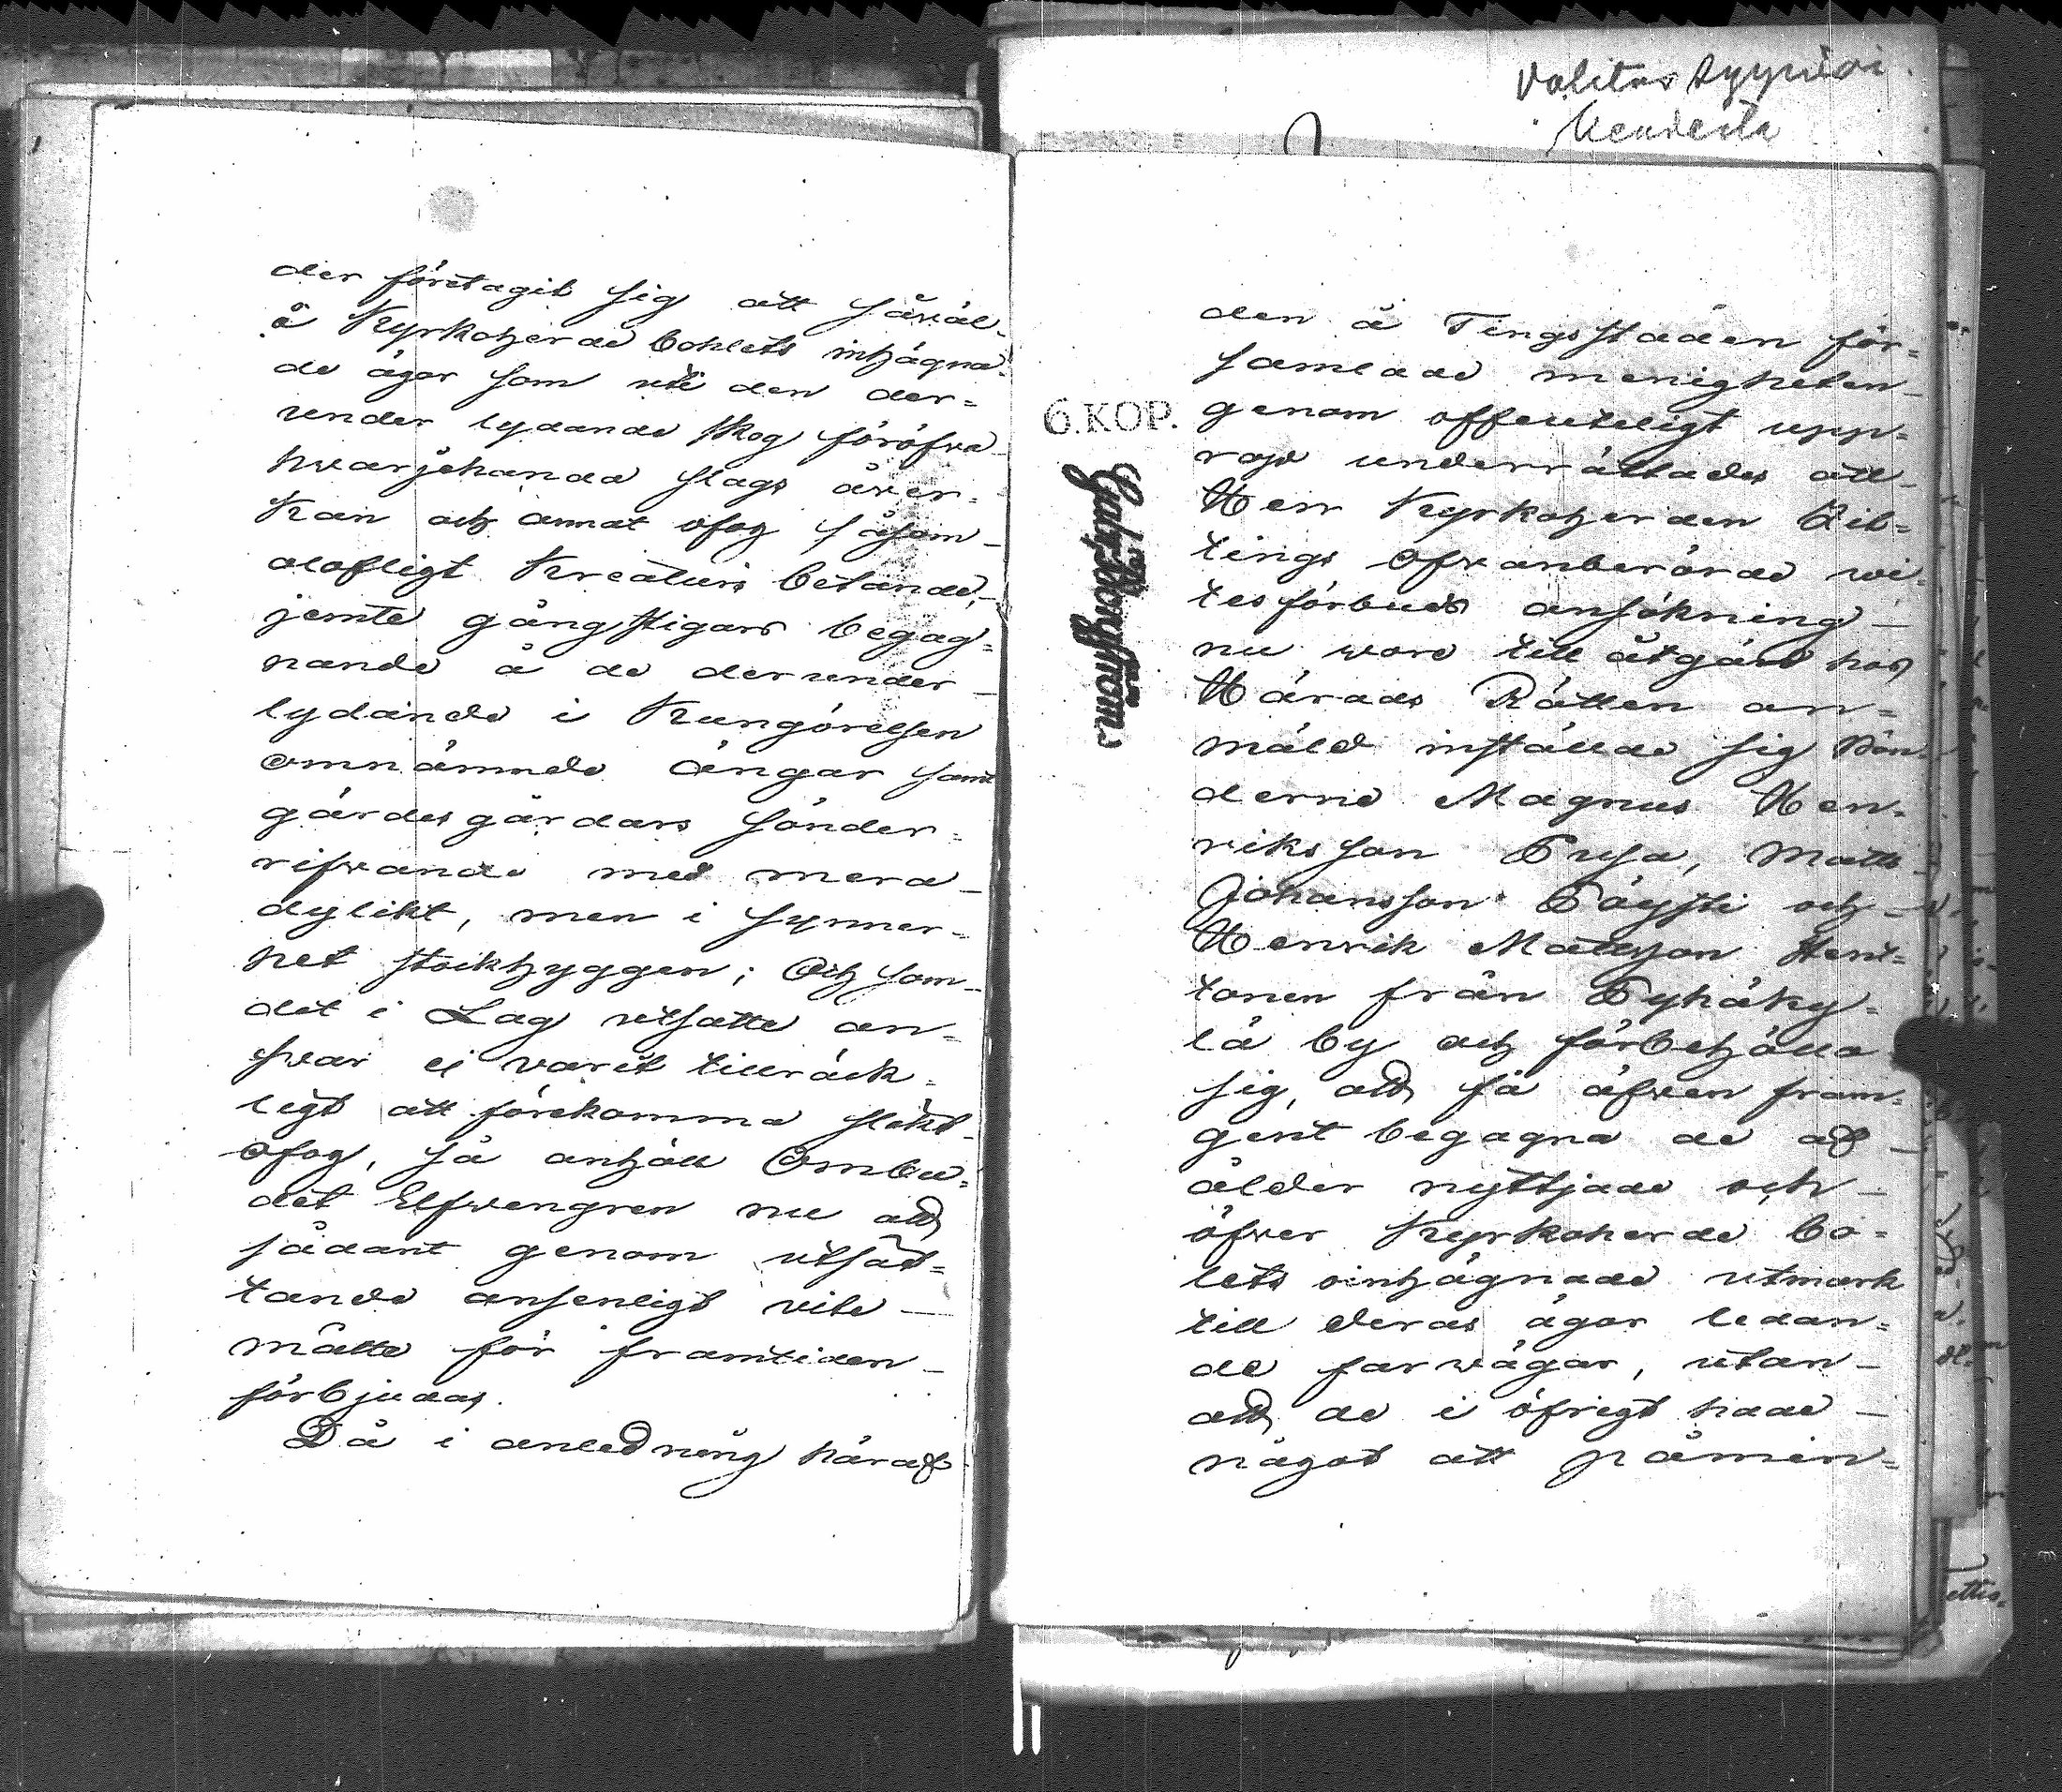 der företagit sig att såväl
å Kyrkoherde bohlets inhägna-
de ägor som uti den der=
under lydande skog föröfva
hvarjehanda slags åver=
kan och annat ofog såsom
olofligt Kreaturs betande,
jemte gångstigars begag=
nande å de derunder
lydande i Kungörelsen
omnämnde ängar samt
gärdesgårdars sönder=
rifvande med mera
dylikt, men i synner=
het stockhyggen; Och som
det i Lag utsatte an=
svar ej varit tillräck=
ligt att förekomma slikt
ofog, så anhöll Ombu=
det Elfvengren nu att
sådant genom utsät=
tande ansenligt vite
måtte för framtiden
förbjudas.
Då i anledning häraf
Valitus syyniöi
6. KOP.
den å Tingsstaden för=
samlade menigheten
genom offenteligt upp=
rop underrättades att
Herr Kyrkoherden
tings ofvanberörde vi=
tesförbuds ansökning
nu vore till åtgärd hos
Härads Rätten an=
mäld instälde sig Bön=
derne Magnus Hen=
riksson Pusa, Matts
Johansson Pöysti och
Henrik Mattsson Hent=
tonen från Pyhäky=
lä by och förbehöllo
sig, att få äfven fram=
gent begagna de af
ålder nyttjade och
öfver Kyrkoherde bo=
lets oinhägnade utmark
till deras ägor ledan=
de farvägar, utan
att de i öfrigt hade
något att påmin=
ettes.